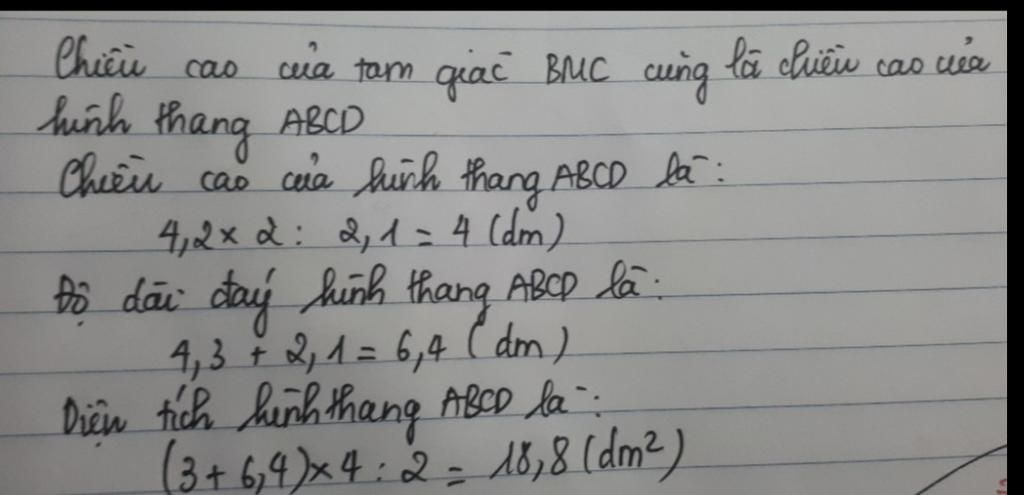 Chiều cao của tam giác BMC cũng là chiều cao của
hình thang ABCD
Chiều cao của hình thang ABCD là:
4,2 x 2 : 2,1 = 4 (dm)
Độ dài đáy hình thang ABCD là:
4,3 + 2,1 = 6,4 (dm)
Diện tích hình thang ABCD là:
(3 + 6,4) x 4 : 2 = 18,8 (dm²)